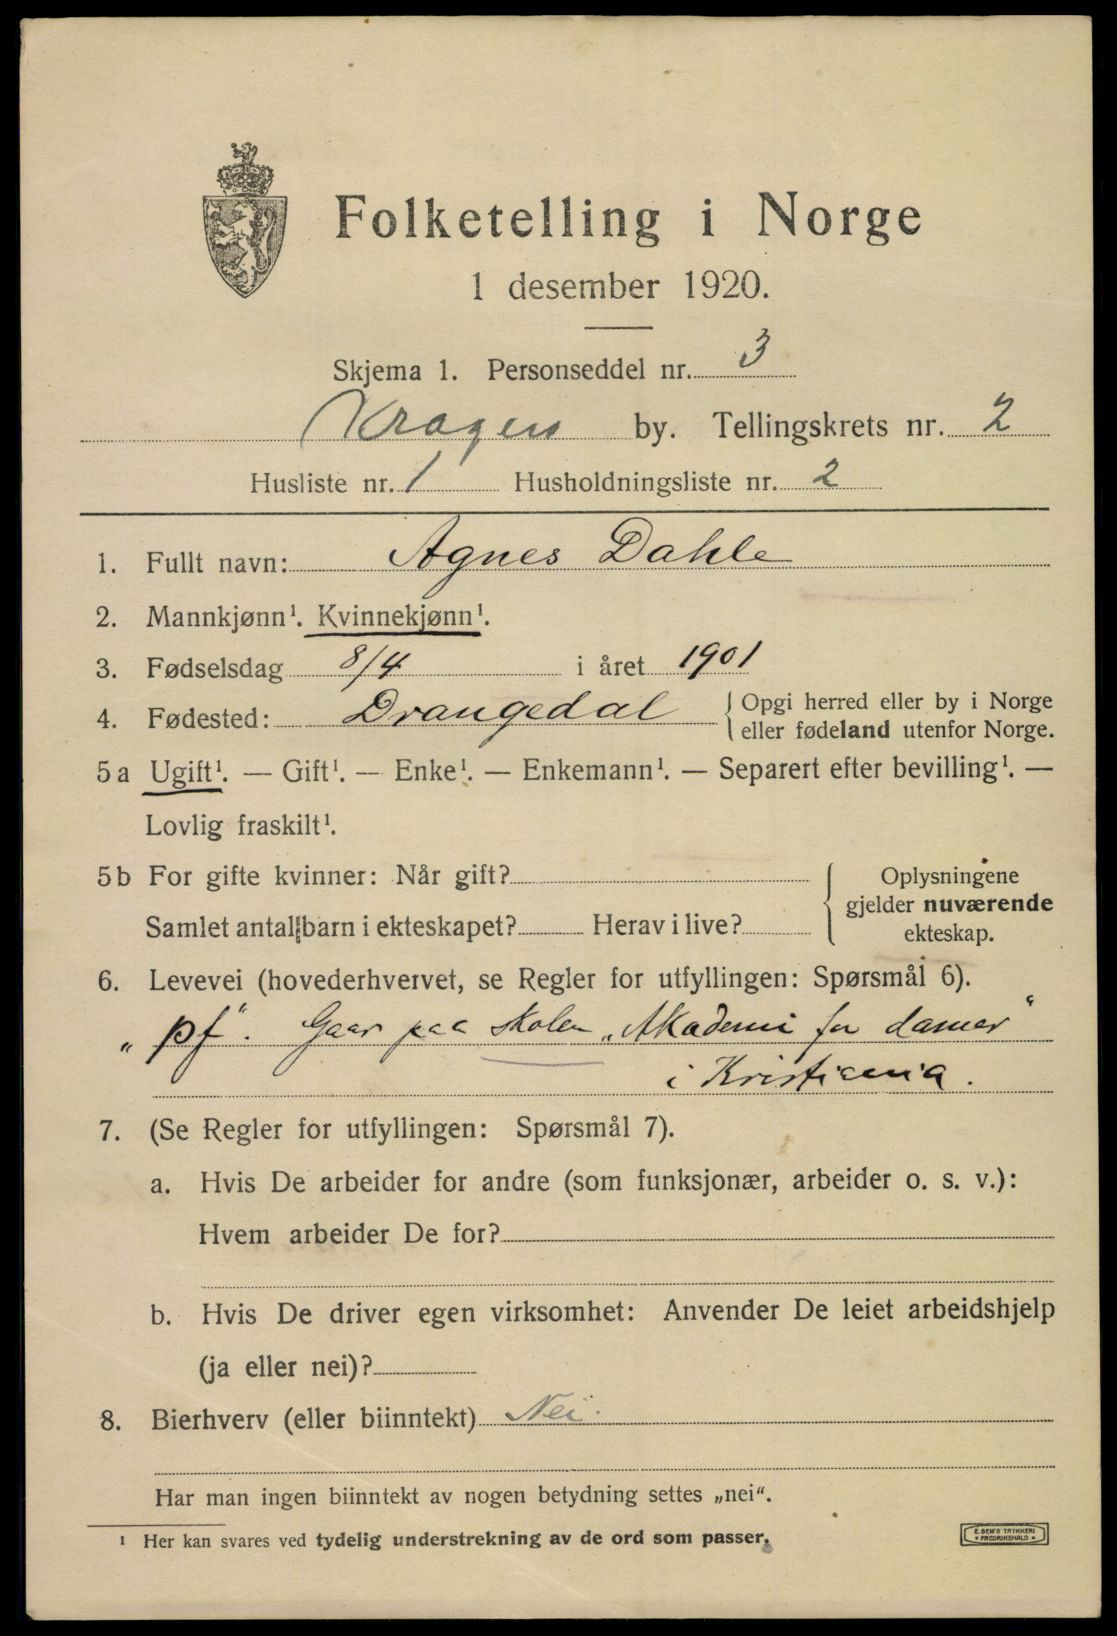 Folketelling i Norge
1 desember 1920.
Skjema 1. Personseddel nr. 3
Kragerø by. Tellingskrets nr. 2
Husliste nr. 1 Husholdningsliste nr. 2
1. Fullt navn: Agnes Dahle
2. Mannkjønn¹. Kvinnekjønn¹.
3. Fødselsdag 8/4 i året 1901
4. Fødested: Drangedal { Opgi herred eller by i Norge
eller fødeland utenfor Norge.
5a Ugift¹. — Gift¹. — Enke¹. — Enkemann¹. — Separert efter bevilling¹. —
Lovlig fraskilt¹.
5b For gifte kvinner: Når gift?
Samlet antal barn i ekteskapet? Herav i live?
{ Oplysningene
gjelder nuværende
ekteskap.
6. Levevei (hovederhvervet, se Regler for utfyllingen: Spørsmål 6).
„pf“. Gaar paa skolen „Akademi for damer“
i Kristiania.
7. (Se Regler for utfyllingen: Spørsmål 7).
a. Hvis De arbeider for andre (som funksjonær, arbeider o. s. v.):
Hvem arbeider De for?
b. Hvis De driver egen virksomhet: Anvender De leiet arbeidshjelp
(ja eller nei)?
8. Bierhverv (eller biinntekt) Nei.
Har man ingen biinntekt av nogen betydning settes „nei“.
¹ Her kan svares ved tydelig understrekning av de ord som passer.
E. SEM'S TRYKKERI
FREDRIKSHALD